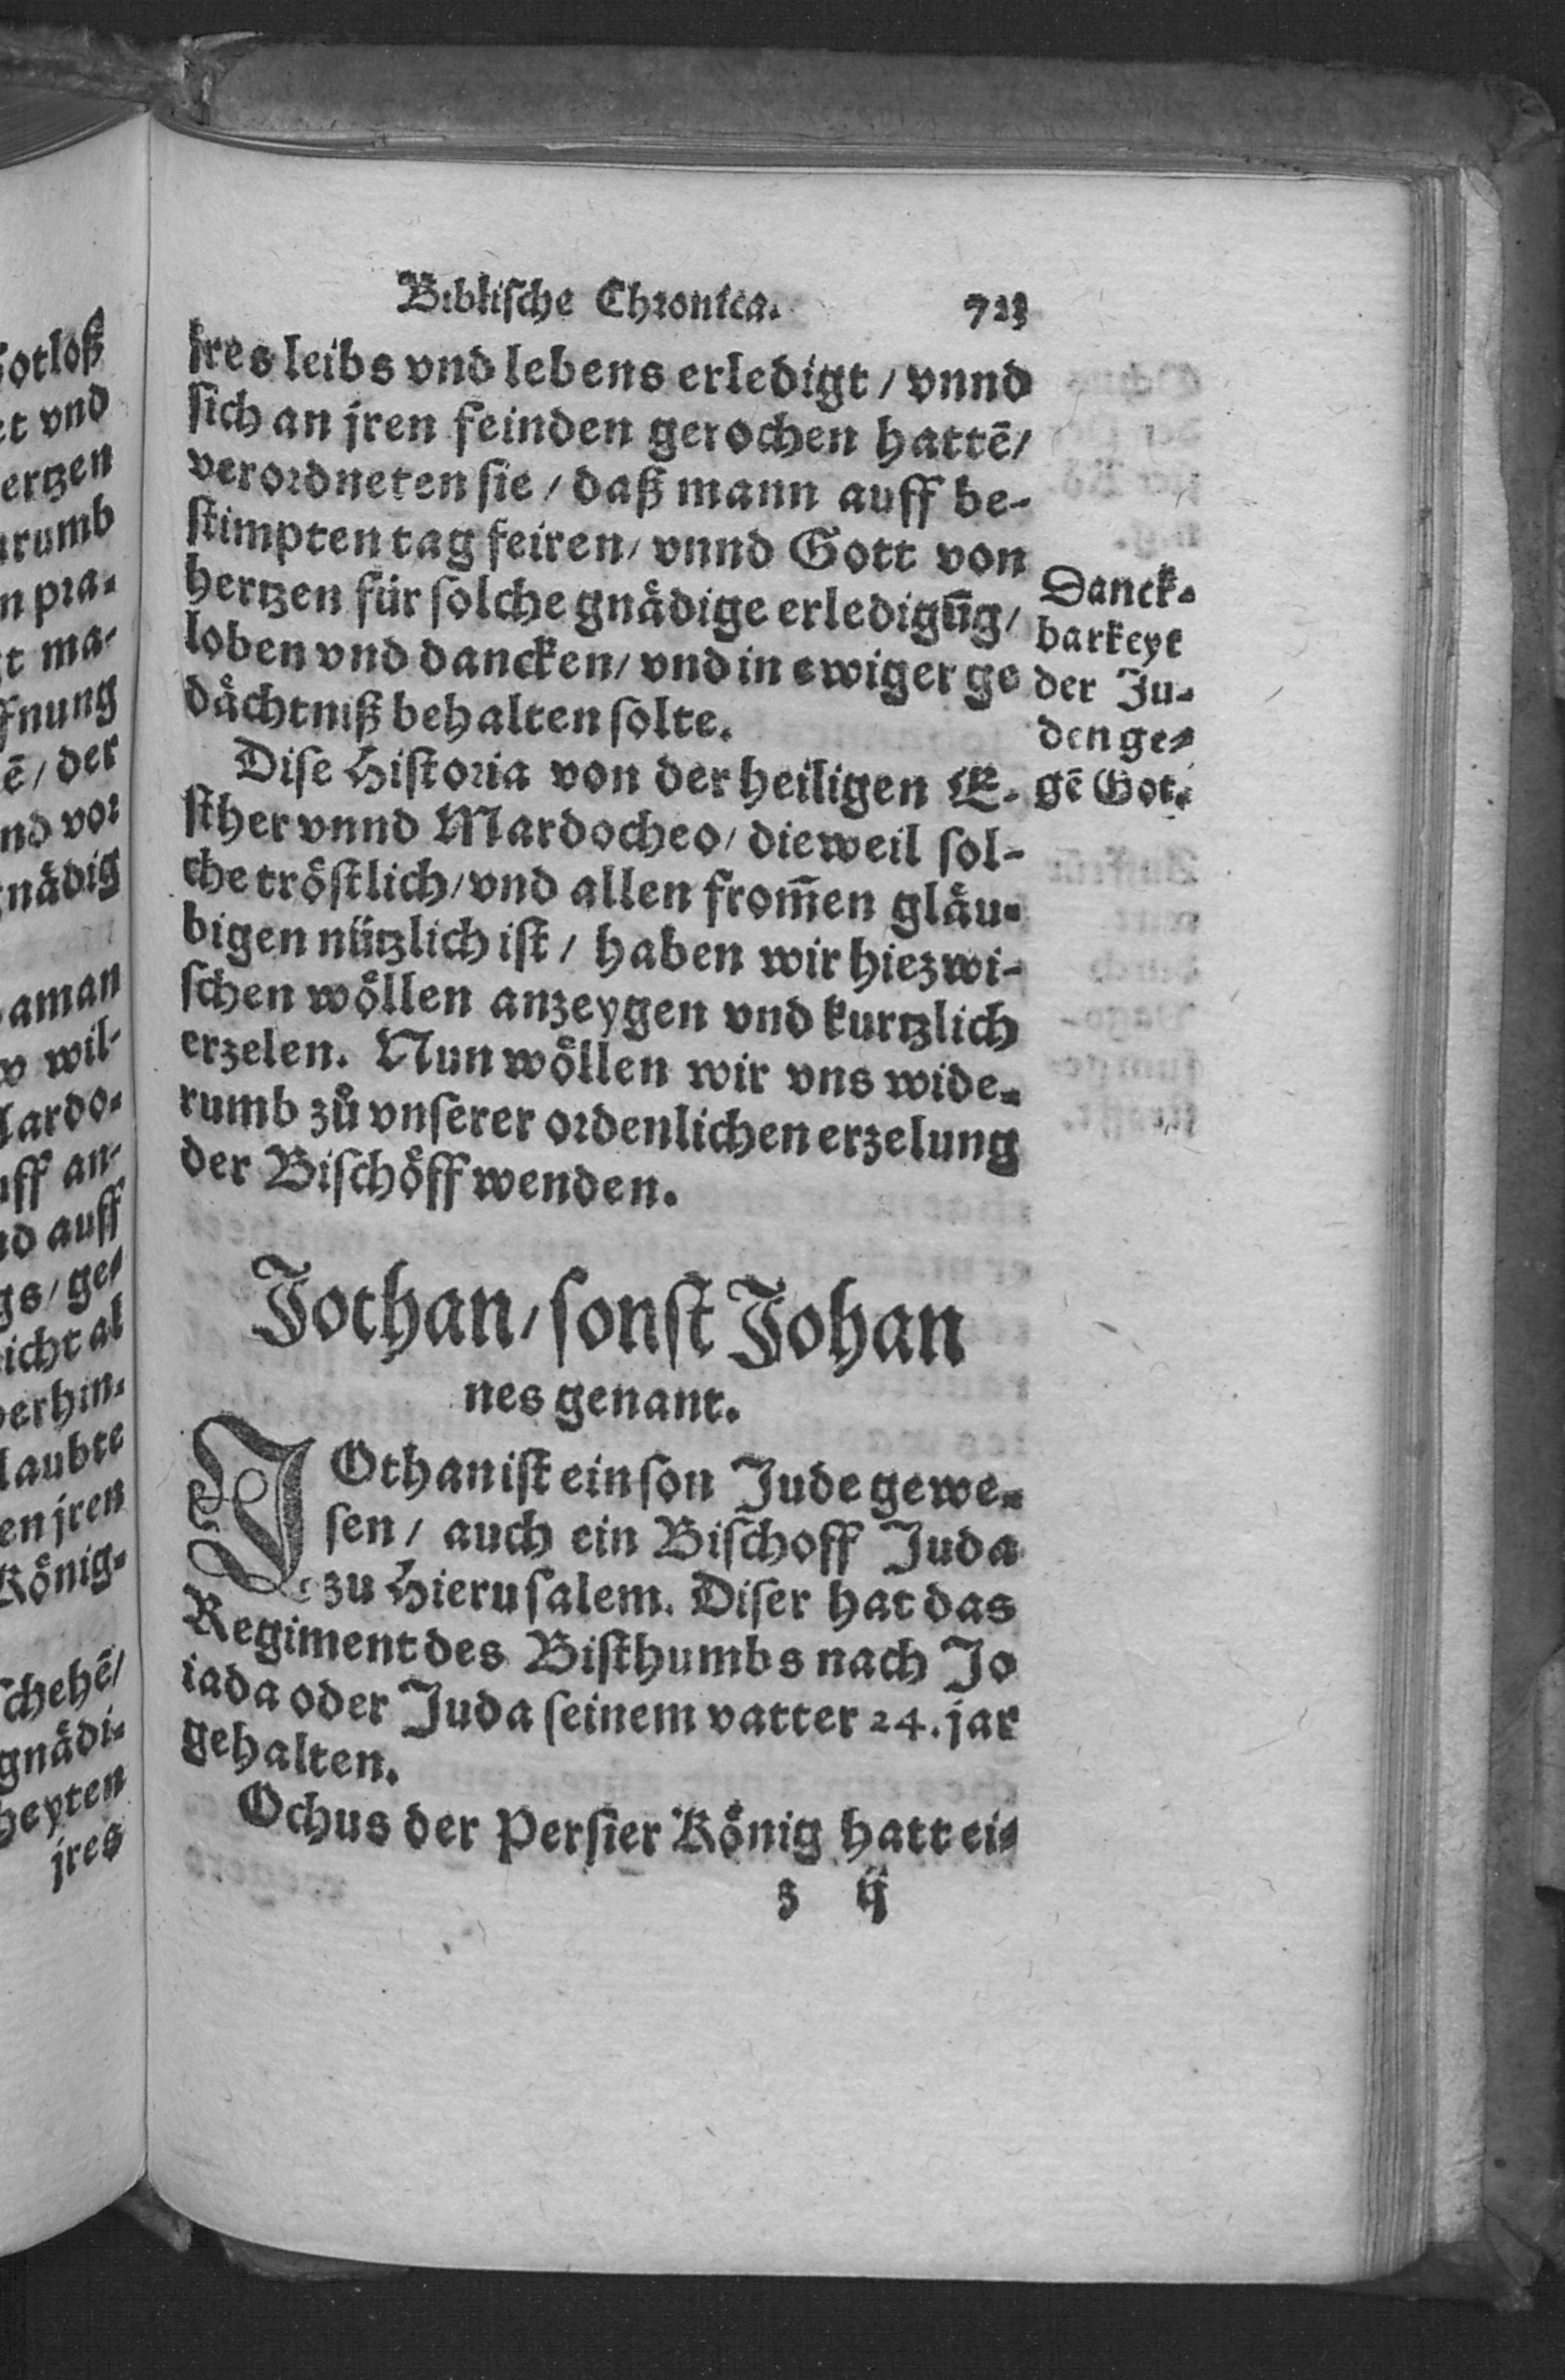 Biblische Chronica. 723
jres leibs vnd lebens erledigt / vnnd
sich an jren feinden gerochen hattē/
verordneten sie / daß mann auff be-
stimpten tag feiren / vnnd Gott von
hertzen für solche gnädige erledigūg/
loben vnd dancken / vnd in ewiger ge
dächtniß behalten solte.
Danck-
barkeyt
der Ju-
den ge-
gē Got.
Dise Historia von der heiligen E-
sther vnnd Mardocheo / dieweil sol-
che tröstlich / vnd allen from̄en gläu-
bigen nützlich ist / haben wir hiezwi-
schen wöllen anzeygen vnd kurtzlich
erzelen. Nun wöllen wir vns wide-
rumb zů vnserer ordenlichen erzelung
der Bischöff wenden.
Jothan / sonst Johan
nes genant.
JOthan ist ein son Jude gewe-
sen / auch ein Bischoff Juda
zu Hierusalem. Diser hat das
Regiment des Bisthumbs nach Jo
iada oder Juda seinem vatter 24. jar
gehalten.
Ochus der Persier König hatt ei-
z ij